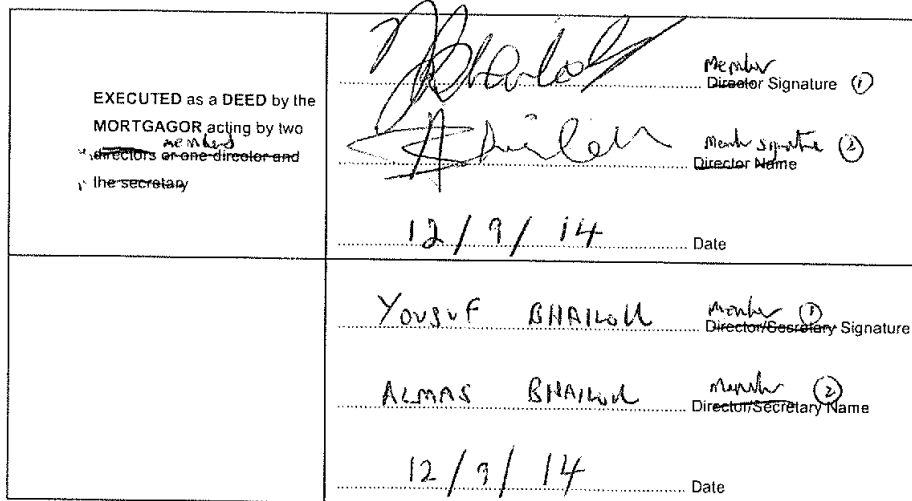 EXECUTED as a DEED by the
MORTGAGOR acting by two
members
directors or one director and
the secretary
Member
Director Signature ①
Member signature ②
Director Name
12/9/14 Date
YOUSUF Member ①
Director/Secretary Signature
ALMAS Member ②
Director/Secretary Name
12/9/14 Date